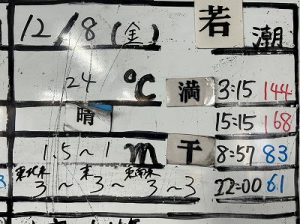 12/8(金) 若潮
24 ℃ 満 3:15 144
晴 15:15 168
1.5～1 m 干 8:57 83
東北東 3～東 3～東南東 3～3 22:00 61